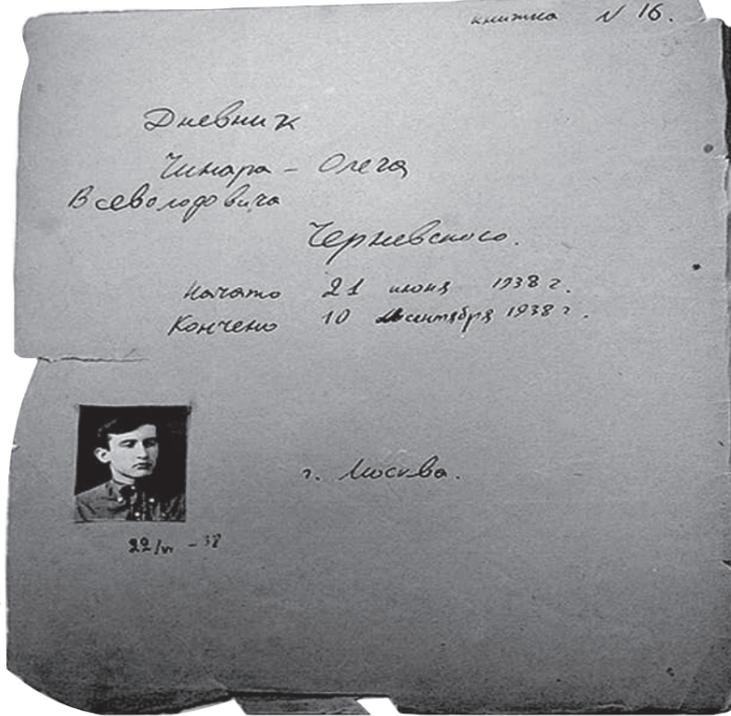 книжка N 16.
Дневник
Чинара - Олега
Всеволодовича
Черневского.
Начато 21 июня 1938 г.
Кончено 10 сентября 1938 г.
г. Москва.
22/VI - 38